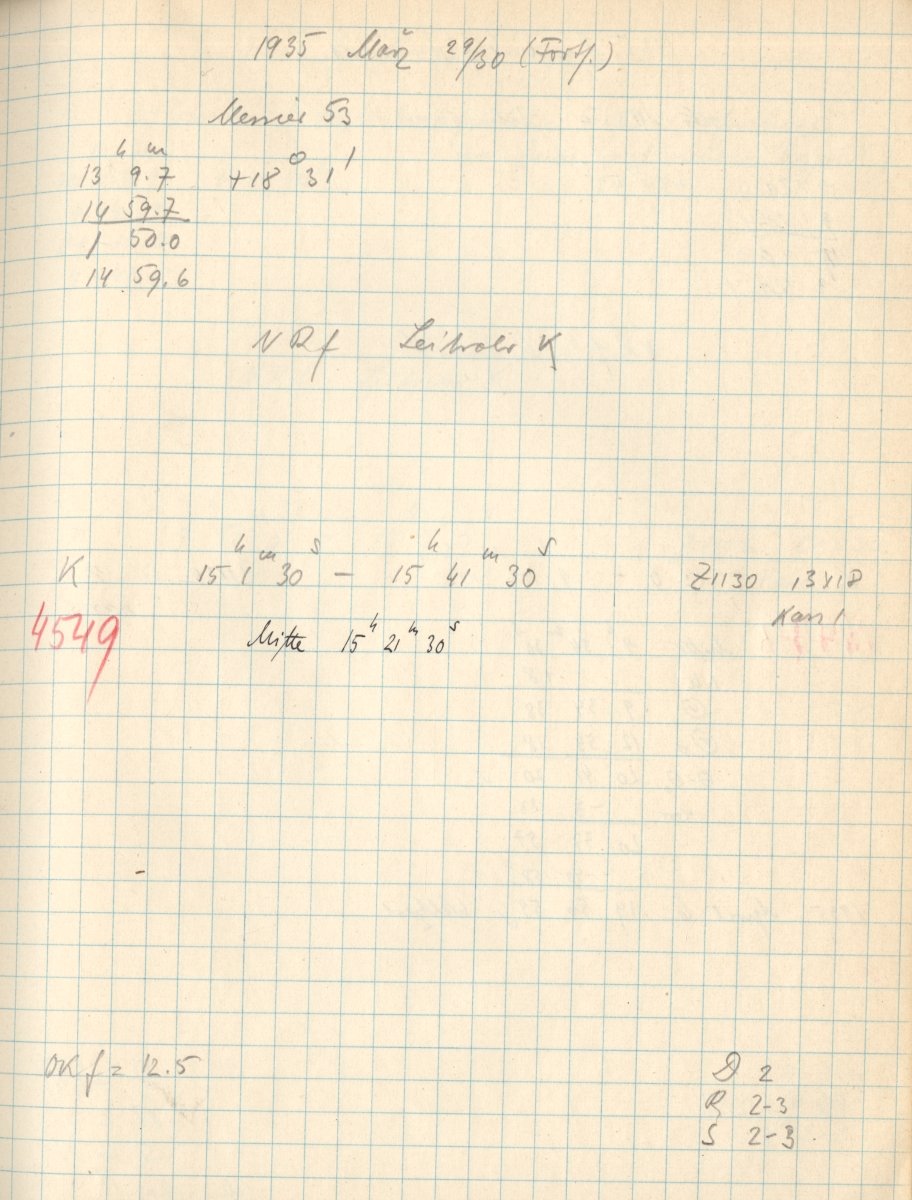 1935 März 29/30 (Forts.)
Messier 53
13ʰ 9.7ᵐ +18° 31'
14 59.7
1 50.0
14 59.6
N R f Leitrohr K
K 15ʰ 1ᵐ 30ˢ – 15ʰ 41ᵐ 30ˢ Z1130 13x18
Kass 1
4549 Mitte 15ʰ 21ᵐ 30ˢ
OK f = 12.5
D 2
R 2-3
S 2-3